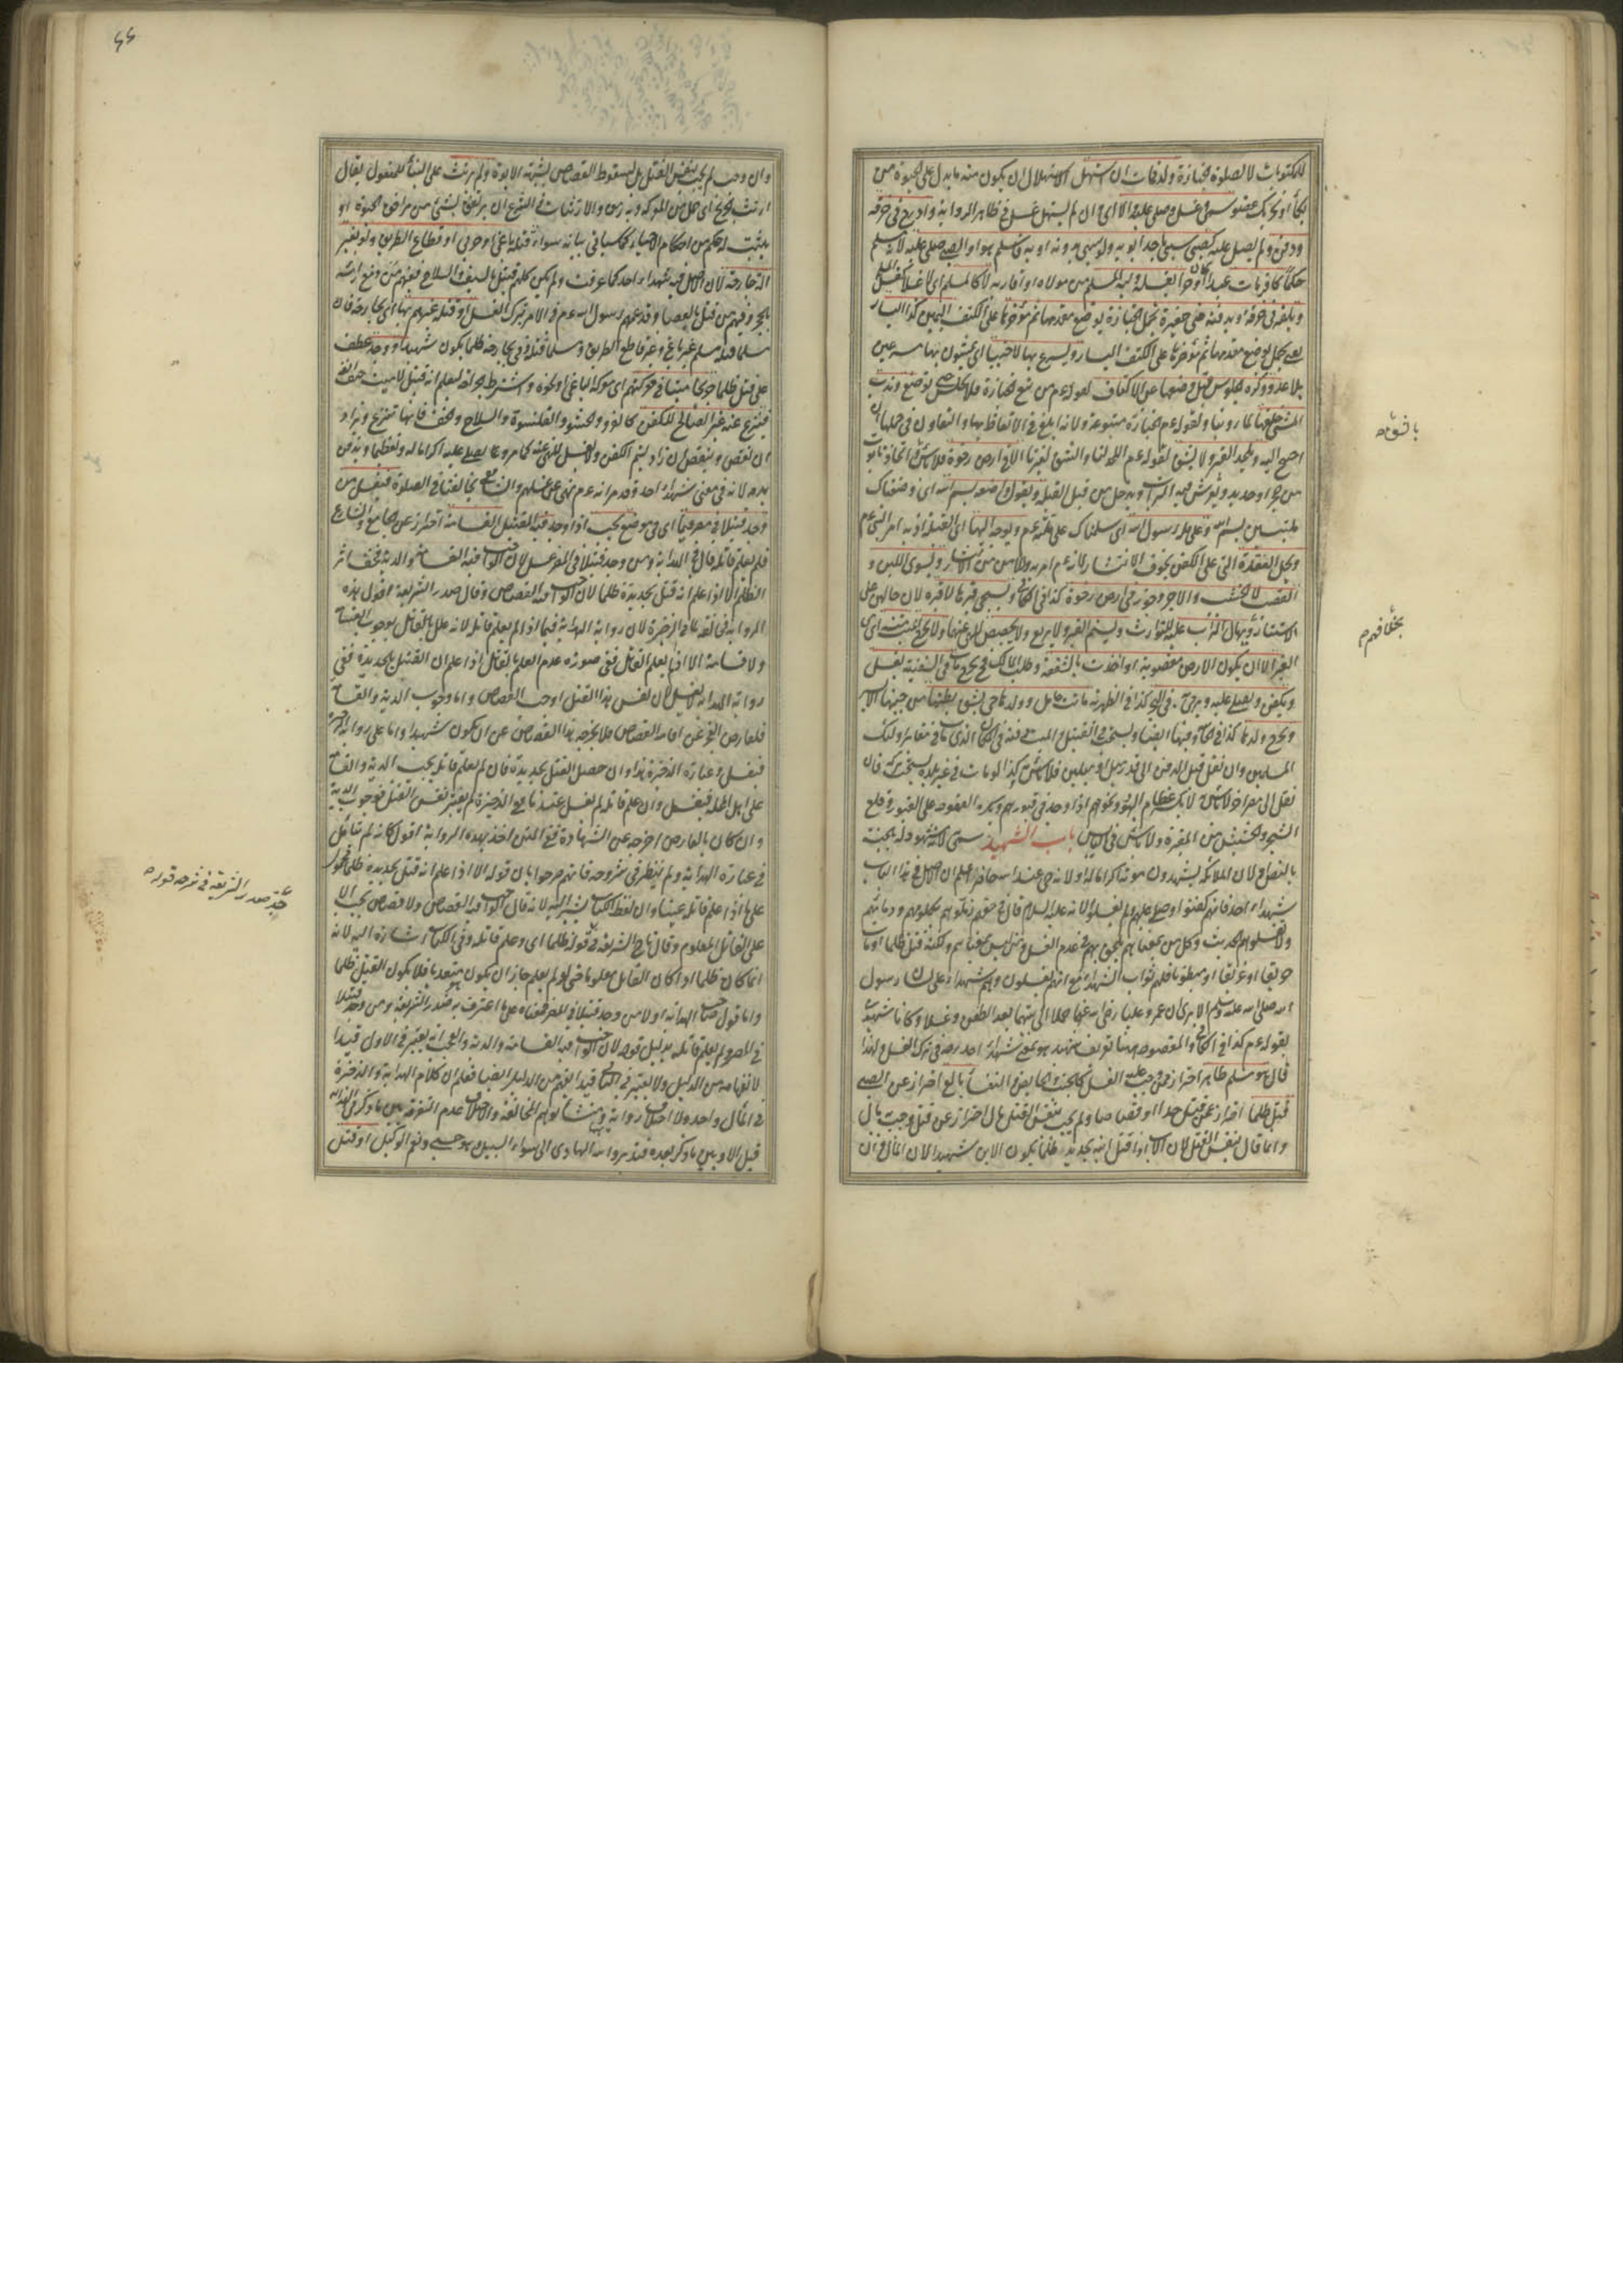 للمكتوبات لا لصلوة الجنازة ولد فمات ان استهل الاستهلال ان يكون منه ما يدل على الحيوة من
بكاء او تحريك عضو سمي وغسل وصلى عليه والا اى وان لم يستهل غسل في ظاهر الرواية وادرج في خرقة
ودفن ولم يصل عليه كصبي سبي باحد ابويه ولو سبي بدونه او به فاسلم هو او الصبي صلى عليه لانه مسلم
حكما كافر مات
ويلفه في خرقة ويدفنه في حفيرة يحمل الجنازة بوضع مقدمها ثم مؤخرها على الكتف اليمين كذا اليسار
مقدمها ثم مؤخرها على الكتف اليسار ويسرع بها لا خببا اى يمشون بها مسرعين
بلا عدو وكره الجلوس قبل وضعها عن الاكتاف لقوله عم من تبع الجنازة فلا يجلس حتى توضع وندب
المشي خلفها لما روينا ولقوله عم الجنازة متبوعة ولانه ابلغ في الاتعاظ بها والتعاون في حملها ان
احتيج اليه ويلحد القبر ولا يشق لقوله عم اللحد لنا والشق لغيرنا الا في ارض رخوة فلا بأس
من حجر او حديد ويفرش فيه التراب ويدخل من قبل القبلة ويقول واضعه بسم الله اى وضعناك
ملتبسين بسم الله وعلى ملة رسول الله اى سلمناك على ملته عم ويوجه اليها اى القبلة اذ به امر النبي عم
ويحل العقدة التي على الكفن لخوف الانتشار لانه عم امر به وللامن من الانتشار ويسوى اللبن و
القصب لا الخشب والآجر وجوز في ارض رخوة كذا في الكافي ويسجى قبرها لا قبره لان حالهن على
الاستتار ويهال التراب عليه للتوارث ويسنم القبر ولا يربع ولا يجصص للنهي عنهما ولا يخرج الميت منه اى من
القبر الا ان يكون الارض مغصوبة او اخذت بالشفعة وطلب المالك فح يخرج مات في السفينة يغسل
ويكفن ويصلى عليه ويرمى في البحر كذا في الظهيرية ماتت حامل وولدها حي يشق بطنها من جنبها الايسر
ويخرج ولدها كذا في الخانية وفيها ايضا ويستحب في القتيل والميت دفنه في المكان الذي مات في مقابر اولئك
المسلمين وان نقل قبل الدفن الى قدر ميل او ميلين فلا بأس به كذا لو مات في غير بلده يستحب تركه فان
نقل الى مصر آخر لا بأس به لا يكسر عظام اليهود ونحوهم اذا وجد في قبورهم ويكره القعود على القبور وقلع
الشجر والحشيش من المقبرة ولا بأس في اليابس باب الشهيد سمى به لانه مشهود له بالجنة
بالنص ولان الملائكة يشهدون موته اكراما له او لانه حي عند الله حاضر اعلم ان الاصل في هذا الباب
شهداء احد فانهم كفنوا وصلى عليهم ولم يغسلوا لانه عليه السلام قال في حقهم زملوهم بكلومهم ودمائهم
ولا تغسلوهم الحديث وكل من بمعناهم يلحق بهم في عدم الغسل ومن ليس بمعناهم ولكنه قتل ظلما او مات
حريقا او غريقا او مبطونا فلهم ثواب الشهداء مع انهم يغسلون وهم شهداء على لسان رسول
الله صلى الله عليه وسلم الا يرى ان عمر وعليا رضي الله عنهما حملا الى بيتهما بعد الطعن وغسلا وكانا شهيدين
بقوله عم كذا في الكافي والمقصود ههنا تعريف شهيد هو بمعنى شهداء احد رضه في ترك الغسل ولهذا
قال هو مسلم طاهر احتراز عمن وجب عليه الغسل كالجنب والحائض والنفساء بالغ احتراز عن الصبي
قتل ظلما احتراز عمن قتل حدا او قصاصا ولم يجب بنفس القتل مال احتراز عن قتل وجب به مال
وانما قال بنفس القتل لان الاب اذا قتل ابنه بحديدة ظلما يكون الابن شهيدا لان المال وان
بخثا فهرم
٤٤
وان وجب لم يجب بنفس القتل بل لسقوط القصاص بشبهة الابوة ولم يرتث على البناء للمفعول يقال
ارتث الجريح اى حمل من المعركة وبه رمق والارتثاث في الشرع ان يرتفق بشئ من مرافق الحيوة او
يثبت له حكم من احكام الاحياء كما سيأتي بيانه سواء قتله باغ او حربي او قطاع الطريق ولو بغير
آلة جارحة لان الاصل فيه شهداء احد كما عرفت ولم يكن كلهم قتيل السيف والسلاح ففيهم من دمغ رأسه
بالحجر وفيهم من قتل بالعصا وقد عمهم رسول الله عم في الامر بترك الغسل او قتله غيرهم بها اى بجارحة فان
مسلما قتله مسلم غير باغ وغير قاطع الطريق ومسلما قتله ذمي بجارحة ظلما يكون شهيدا ووجد عطف
على قتل ظلما جريحا ميتا في معركتهم اى معركة الباغي ونحوه واشترط الجراحة ليعلم انه قتيل لا ميت حتف انفه
فينزع عنه غير الصالح للكفن كالفرو والحشو والقلنسوة والسلاح والخف فانها تنزع ويزاد
ان نقص وينقص ان زاد ليتم الكفن ولا يغسل للنهي عنه كما مر ويصلى عليه اكراما له وتعظيما ويدفن
بدمه لانه في معنى شهداء احد وقد مر انه عم نهى عن غسلهم والشافعي يخالفنا في الصلوة فيغسل من
وجد قتيلا في مصر فيما اى في موضع يجب اذا وجد فيه القتيل القسامة احتراز عن الجامع والشارع
فلم يعلم قاتله قال في الهداية ومن وجد قتيلا في المصر غسل لان الواجب فيه القسامة والدية فخف اثر
الظلم الا اذا علم انه قتل بحديدة ظلما لان الواجب فيه القصاص وقال صدر الشريعة اقول هذه
الرواية مخالفة لما في الذخيرة لان رواية الهداية فيما اذا لم يعلم قاتله لانه علل بالقاتل بوجوب القسامة
ولا قسامة الا اذا لم يعلم القاتل ففي صورة عدم العلم بالقاتل اذا علم ان القتيل بالحديدة ففي
رواية الهداية لا يغسل لان نفس هذا القتل اوجب القصاص واما وجوب الدية والقسامة
فلعارض العجز عن اقامة القصاص فلا يخرجه هذا القصاص عن ان يكون شهيدا واما على رواية الذخيرة
فيغسل وعبارة الذخيرة هذا وان حصل القتل بحديدة فان لم يعلم قاتله يجب الدية والقسامة
على اهل المحلة فيغسل وان علم قاتله لم يغسل عندنا ففي الذخيرة لم يعتبر نفس القتل فوجوب الدية
وان كان بالعارض اخرجه عن الشهادة ففي المتن اخذ بهذه الرواية اقول كانه لم يتأمل
في عبارة الهداية ولم ينظر في شروحه فانهم صرحوا بان قوله الا اذا علم انه قتل بحديدة ظلما محمول
على ما اذا علم قاتله عينا وان لفظ الكتاب يشير اليه لانه قال الواجب فيه القصاص ولا قصاص يجب الا
على القاتل المعلوم وقال تاج الشريعة في قوله ظلما اى وعلم قاتله وفي الكتاب اشارة اليه لانه
انما كان ظلما اذا كان القاتل معلوما حتى لو لم يعلم جاز ان يكون متعديا فلا يكون القتيل ظلما
واما قول صاحب الهداية اولا من وجد قتيلا في المصر فمعناه على ما اعترف به صدر الشريعة ومن وجد قتيلا
في المصر ولم يعلم قاتله بدليل قوله لان الواجب فيه القسامة والدية والعجب انه يعتبر في الاول قيدا
لا نفهامه من الدليل ولا يعتبر في الثاني قيدا انفهم من الدليل ايضا فعلم ان كلام الهداية والذخيرة
في المآل واحد ولا اختلاف رواية ومنشأ توهم المخالفة والاختلاف عدم التفرقة بين ما ذكر في الهداية
قبل الا وبين ما ذكر بعده فتدبر والله الهادي الى سواء السبيل وهو حسبي ونعم الوكيل او قتل
صدر الشريعة في شرحه